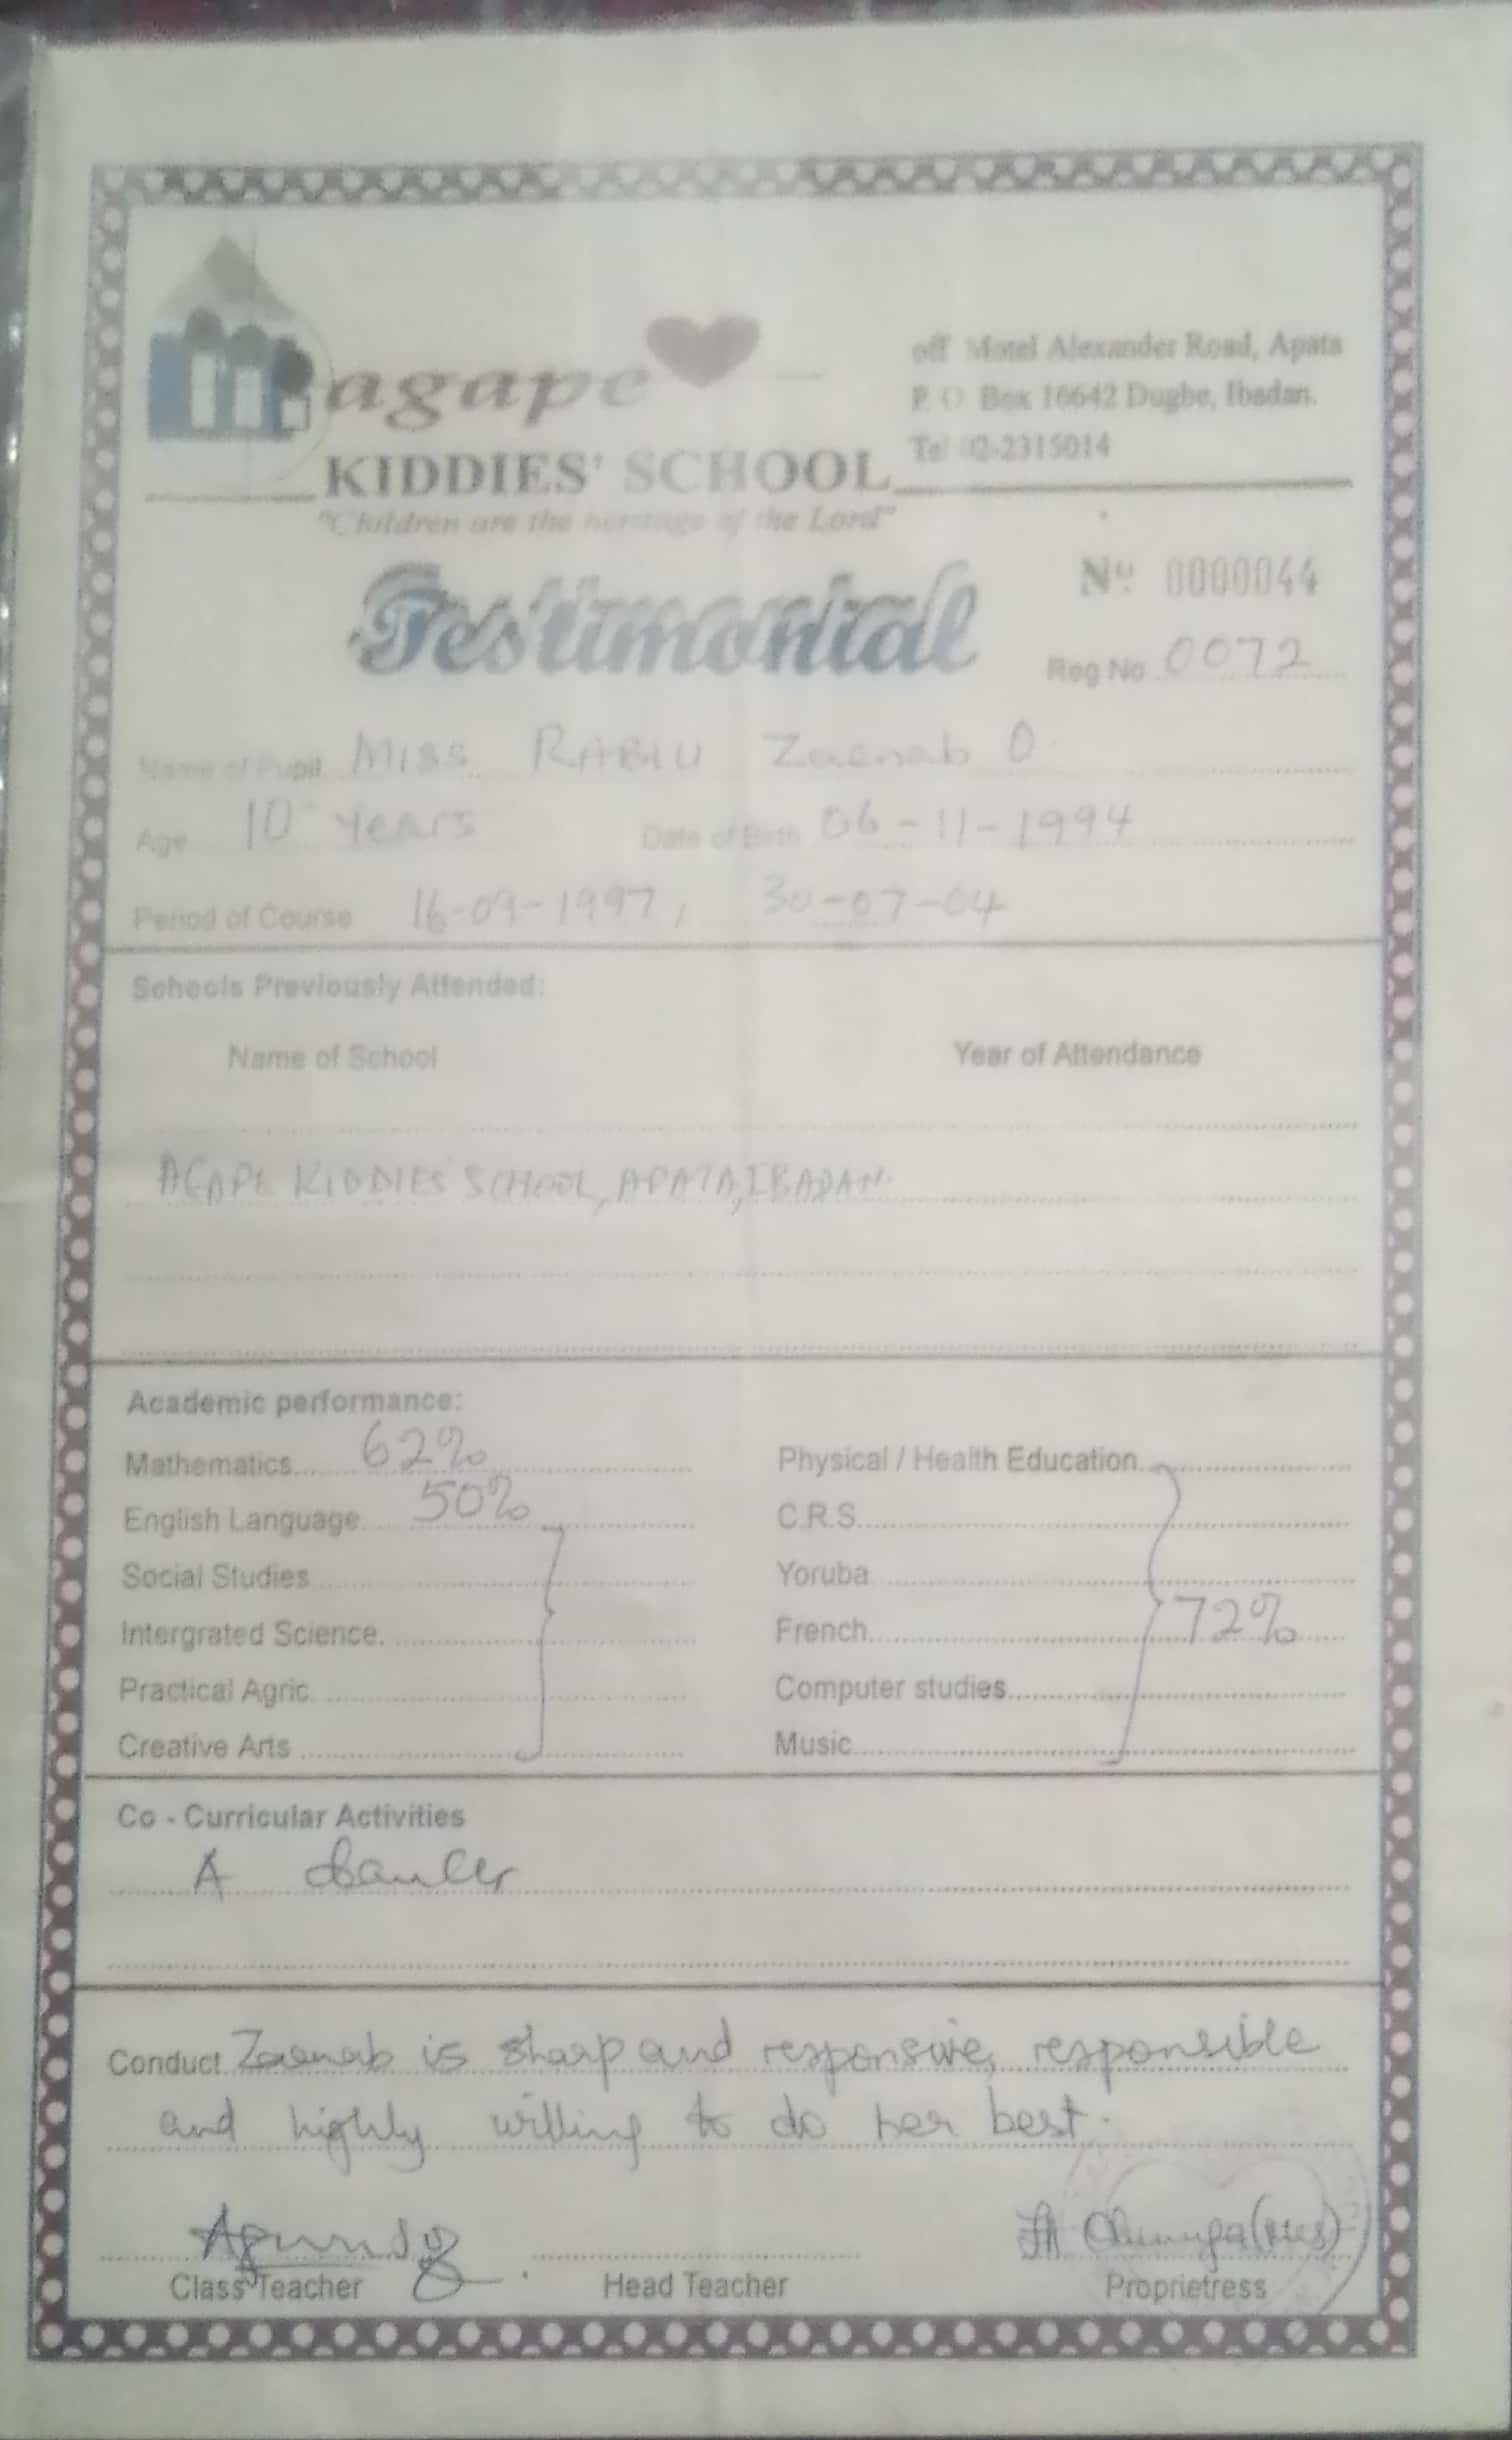 agape
off Motel Alexander Road, Apata
P. O. Box 16642 Dugbe, Ibadan.
Tel 02-2315014
KIDDIES' SCHOOL
"Children are the heritage of the Lord"
Testimonial
No 0000044
Reg No 0072
Name of Pupil Miss RABIU Zaenab O
Age 10 years Date of Birth 06-11-1994
Period of Course 16-09-1997, 30-07-04
Schools Previously Attended:
Name of School Year of Attendance
AGAPE KIDDIES SCHOOL, APATA, IBADAN.
Academic performance:
Mathematics 62% Physical / Health Education
English Language 50% C.R.S
Social Studies Yoruba
Intergrated Science French 72%
Practical Agric Computer studies
Creative Arts Music
Co - Curricular Activities
A dancer
Conduct Zaenab is sharp and responsive, responsible
and highly willing to do her best.
Class Teacher Head Teacher Proprietress